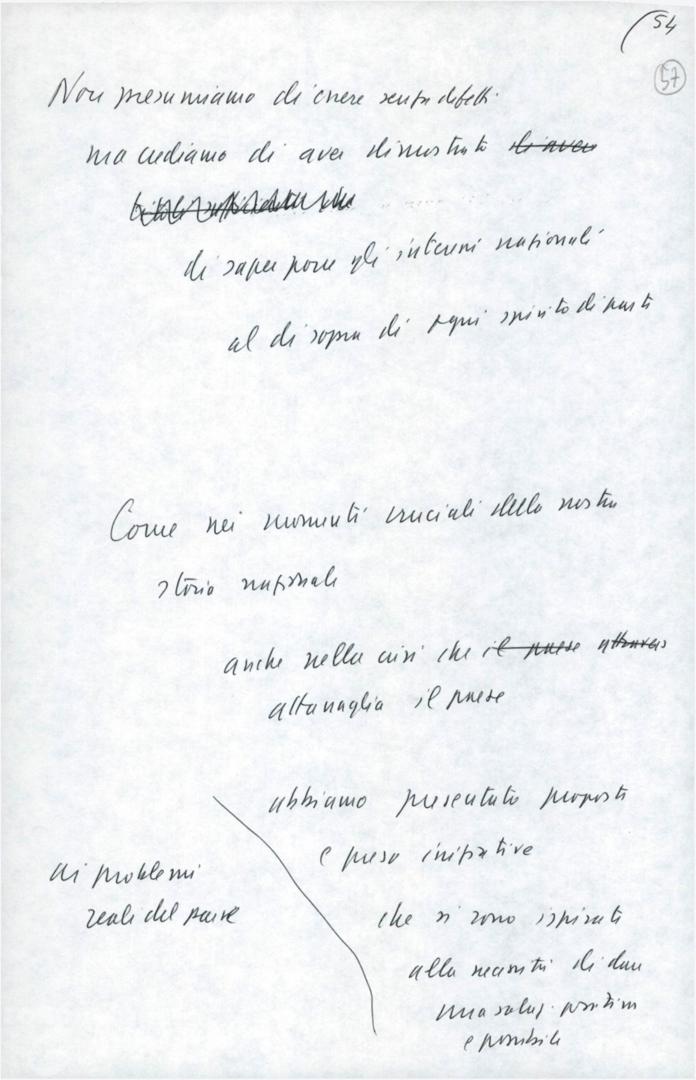 54
57
Non presumiamo di essere senza difetti
ma crediamo di aver dimostrato di aver
di saper porre gli interessi nazionali
al di sopra di ogni spirito di parte
Come nei momenti cruciali della nostra
storia nazionale
anche nella crisi che il paese attraversa
attanaglia il paese
abbiamo presentato proposte
e preso iniziative
che si sono ispirate
alla necessità di dare
una soluz. positiva
e possibile
ai problemi
reali del paese